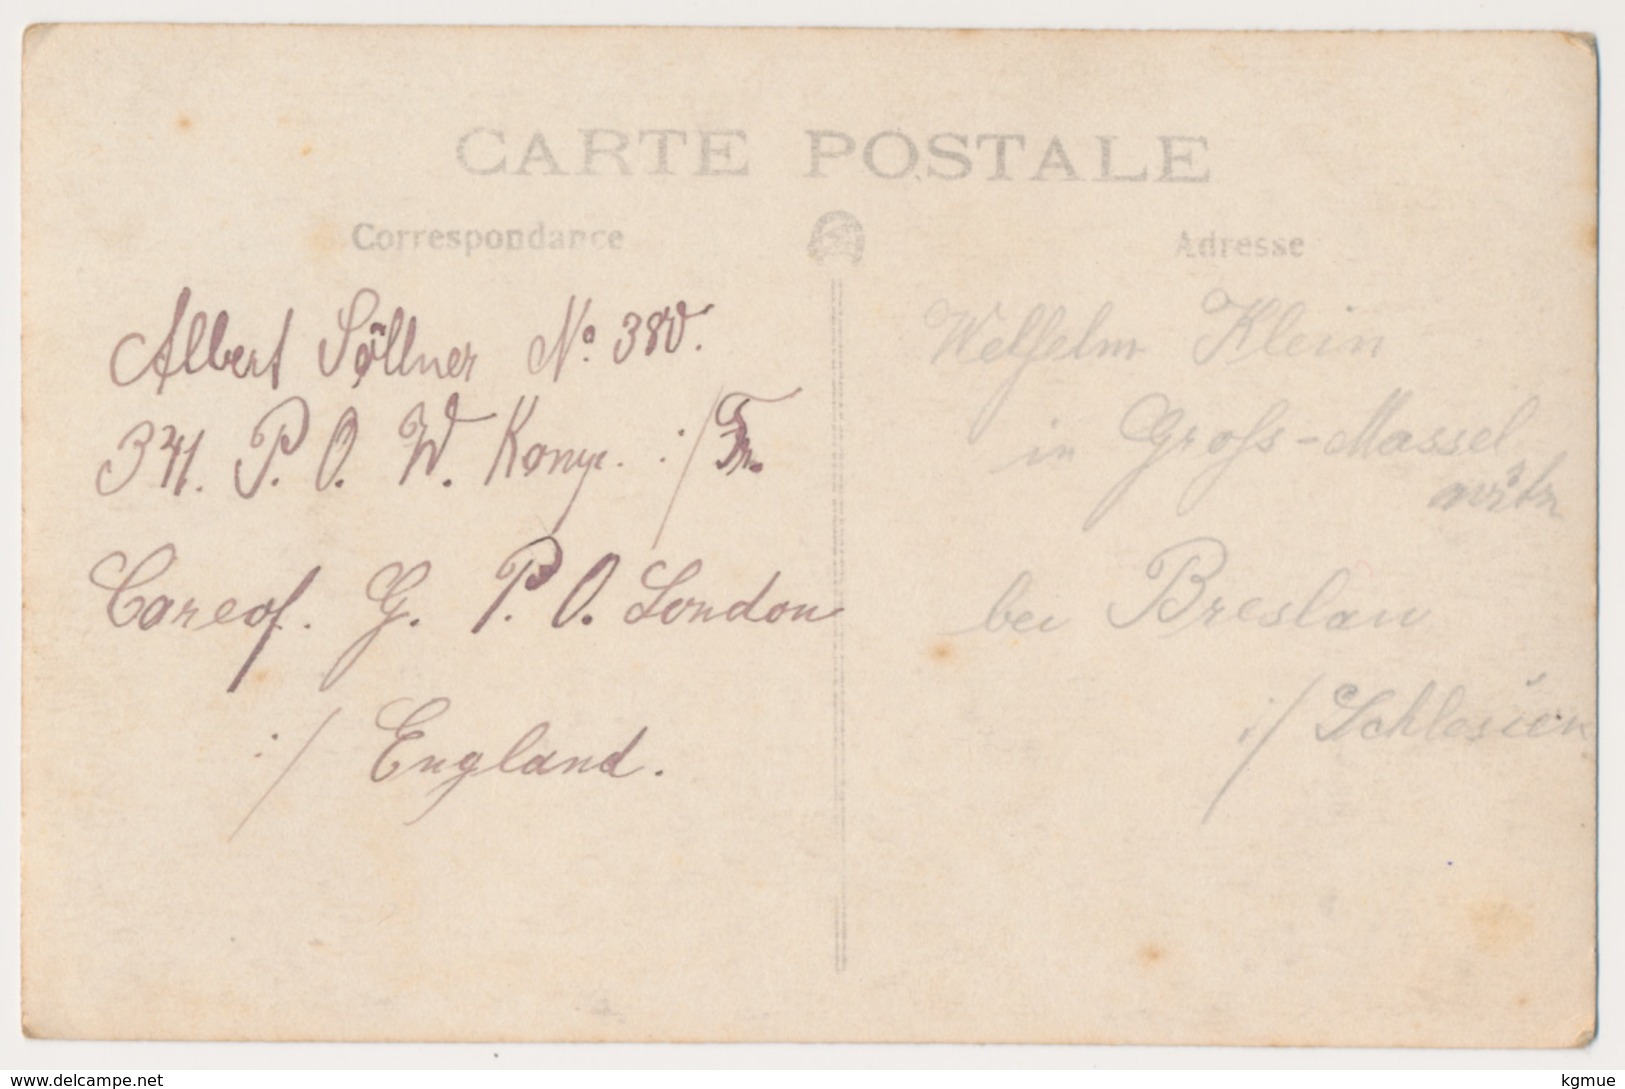 CARTE POSTALE
Correspondance
Adresse
Albert Söllner No. 380.
341. P. O. W. Komp. i/Fr.
Careof. G. P. O. London
i/ England.
Welhelm Klein
in Gross-Massel
witz
bei Breslau
i/ Schlesien
www.delcampe.net
kgmue